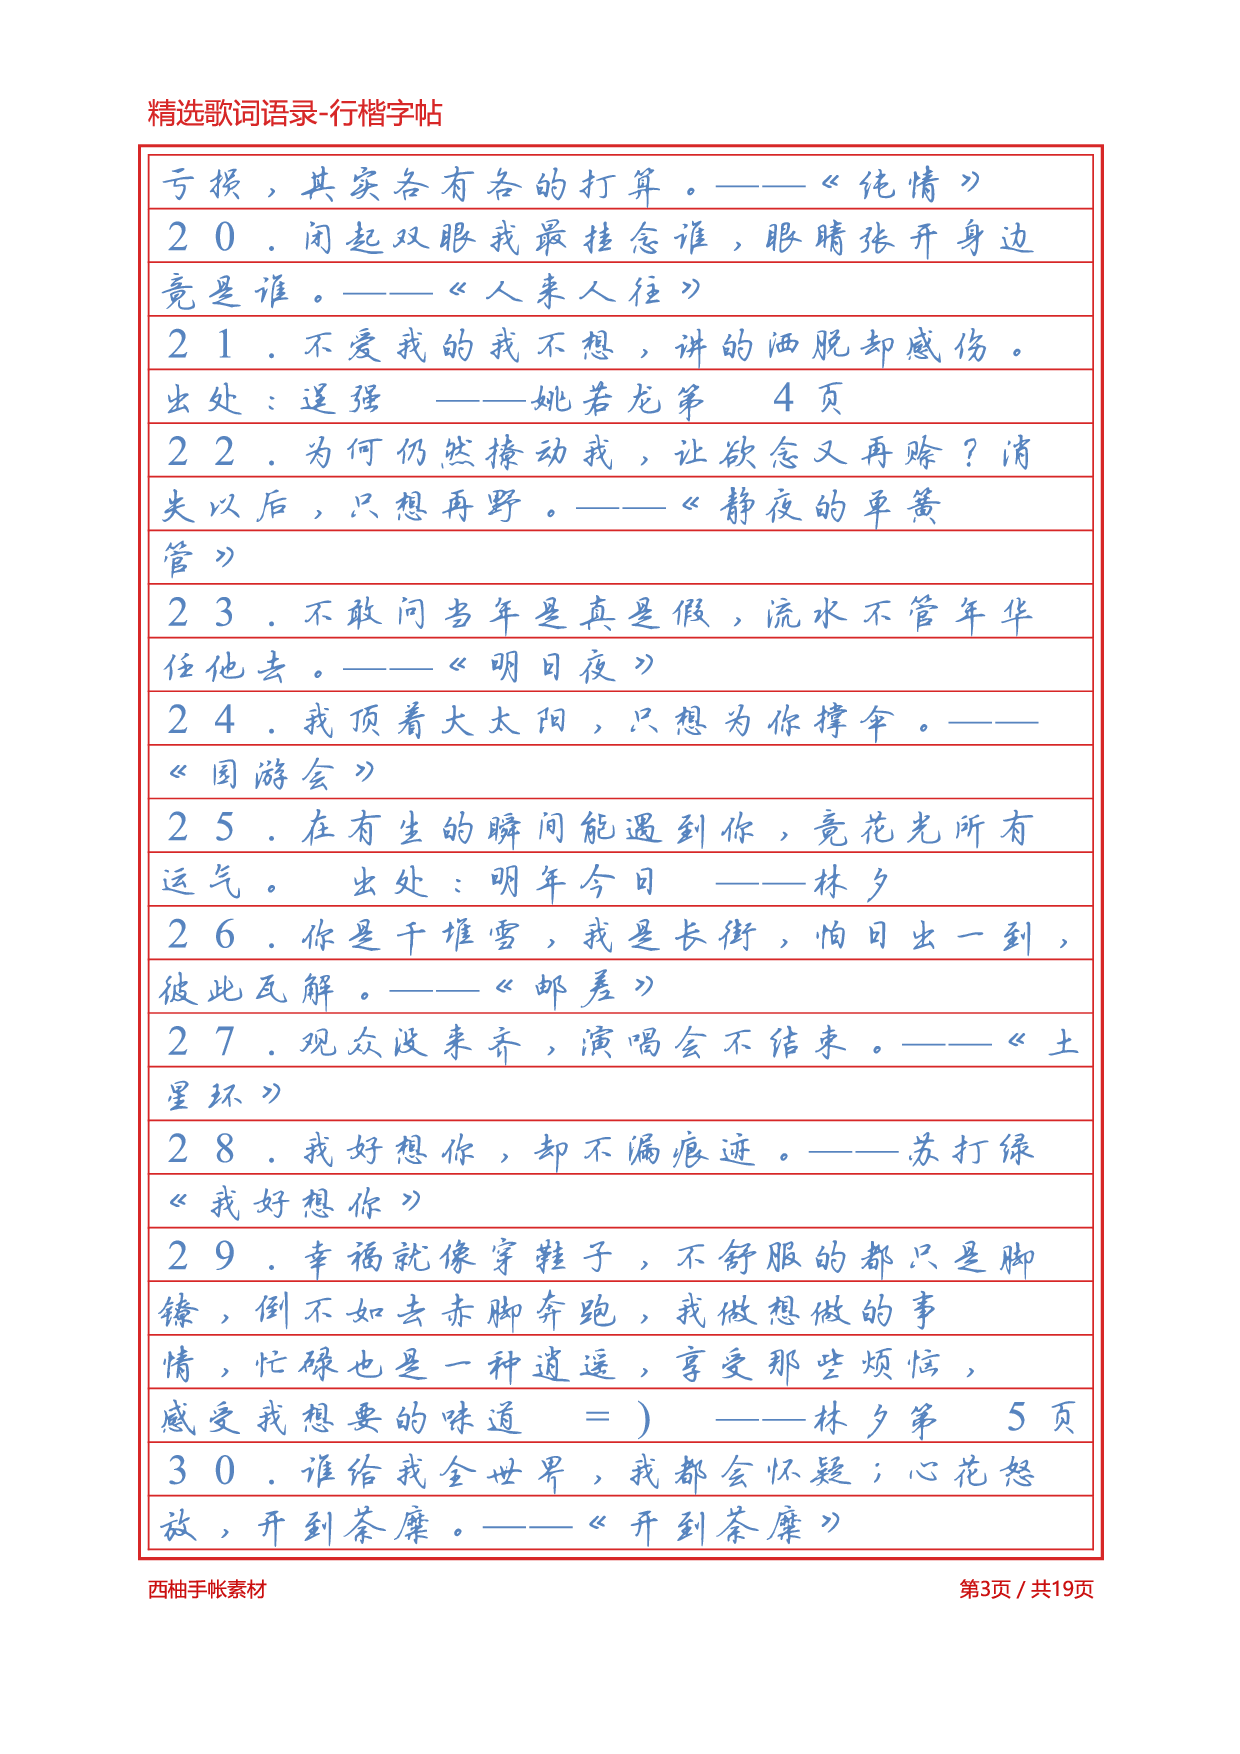 精选歌词语录-行楷字帖
亏损，其实各有各的打算。——《纯情》
20.闭起双眼我最挂念谁，眼睛张开身边
竟是谁。——《人来人往》
21.不爱我的我不想，讲的洒脱却感伤。
出处：逞强 ——姚若龙第 4页
22.为何仍然撩动我，让欲念又再赊？消
失以后，只想再野。——《静夜的单簧
管》
23.不敢问当年是真是假，流水不管年华
任他去。——《明日夜》
24.我顶着大太阳，只想为你撑伞。——
《园游会》
25.在有生的瞬间能遇到你，竟花光所有
运气。 出处：明年今日 ——林夕
26.你是千堆雪，我是长街，怕日出一到，
彼此瓦解。——《邮差》
27.观众没来齐，演唱会不结束。——《土
星环》
28.我好想你，却不漏痕迹。——苏打绿
《我好想你》
29.幸福就像穿鞋子，不舒服的都只是脚
镣，倒不如去赤脚奔跑，我做想做的事
情，忙碌也是一种逍遥，享受那些烦恼，
感受我想要的味道 =) ——林夕第 5页
30.谁给我全世界，我都会怀疑；心花怒
放，开到荼靡。——《开到荼靡》
西柚手帐素材
第3页 / 共19页